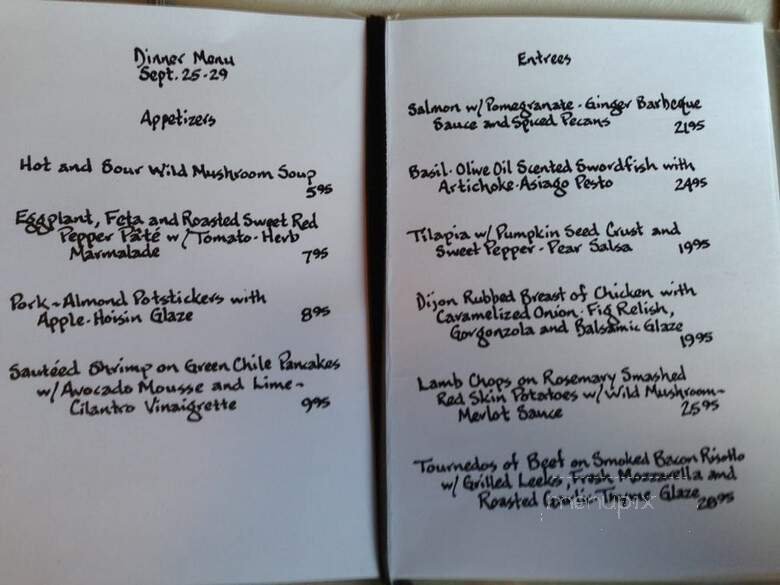 Dinner Menu
Sept. 25-29
Appetizers
Hot and Sour Wild Mushroom Soup
5.95
Eggplant, Feta and Roasted Sweet Red
Pepper Pâté w/Tomato-Herb
Marmalade 7.95
Pork-Almond Potstickers with
Apple-Hoisin Glaze 8.95
Sautéed Shrimp on Green Chile Pancakes
w/Avocado Mousse and Lime-
Cilantro Vinaigrette 9.95
Entrees
Salmon w/Pomegranate-Ginger Barbeque
Sauce and Spiced Pecans 21.95
Basil-Olive Oil Scented Swordfish with
Artichoke-Asiago Pesto 24.95
Tilapia w/Pumpkin Seed Crust and
Sweet Pepper-Pear Salsa 19.95
Dijon Rubbed Breast of Chicken with
Caramelized Onion-Fig Relish,
Gorgonzola and Balsamic Glaze
19.95
Lamb Chops on Rosemary Smashed
Red Skin Potatoes w/Wild Mushroom-
Merlot Sauce 25.95
Tournedos of Beef on Smoked Bacon Risotto
w/Grilled Leeks, Fresh Mozzarella and
Roasted Garlic-Thyme Glaze 28.95
menupix